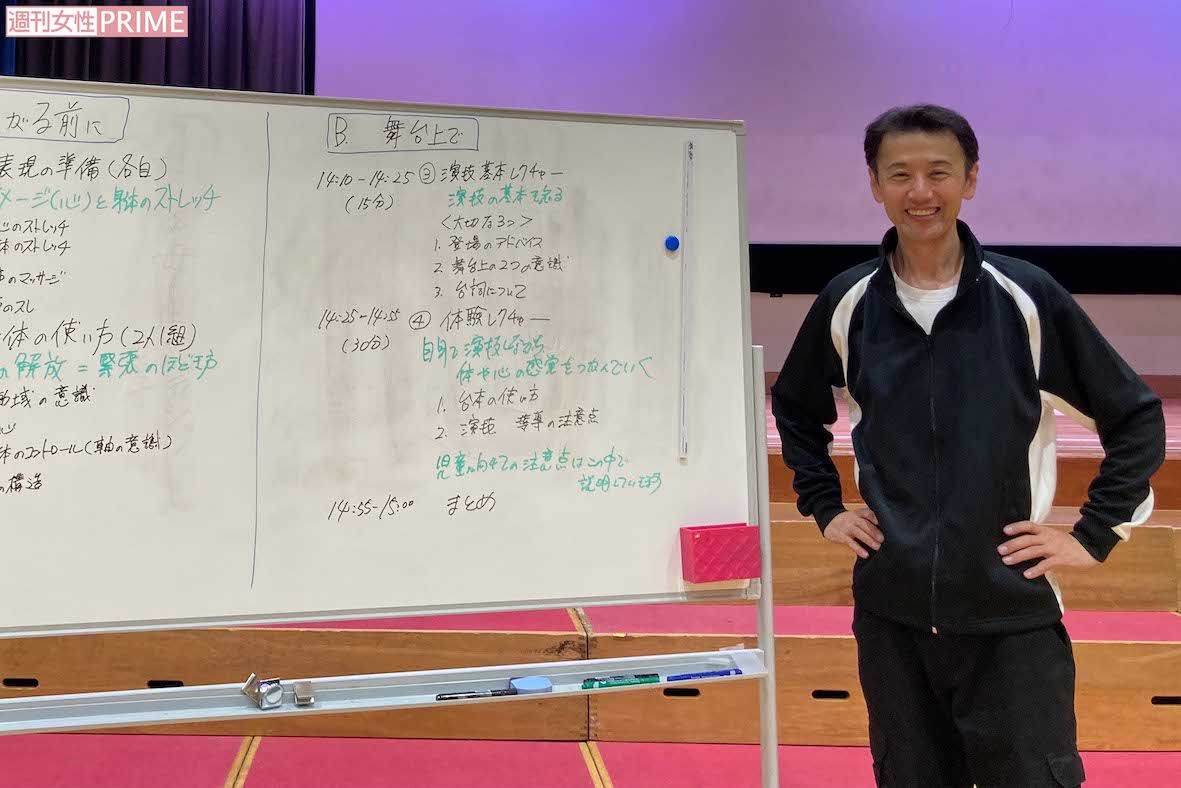 週刊女性PRIME
がる前に
表現の準備(各自)
メージ(心)と身体のストレッチ
心のストレッチ
体のストレッチ
のマッサージ
体の使い方(2人1組)
の解放=緊張のほどき方
領域の意識
体のコントロール(軸の意識)
の構造
B. 舞台上で
14:10-14:25 ③ 演技基本レクチャー
(15分) 演技の基本を知る
<大切な3つ>
1. 登場のアドバイス
2. 舞台上の2つの意識
3. 台詞について
14:25-14:55 ④ 体験レクチャー
(30分) 自身で演技しながら
体や心の感覚をつかんでいく
1. 台本の使い方
2. 演技 指導の注意点
児童に向けての注意点はこの中で
説明していきます
14:55-15:00 まとめ